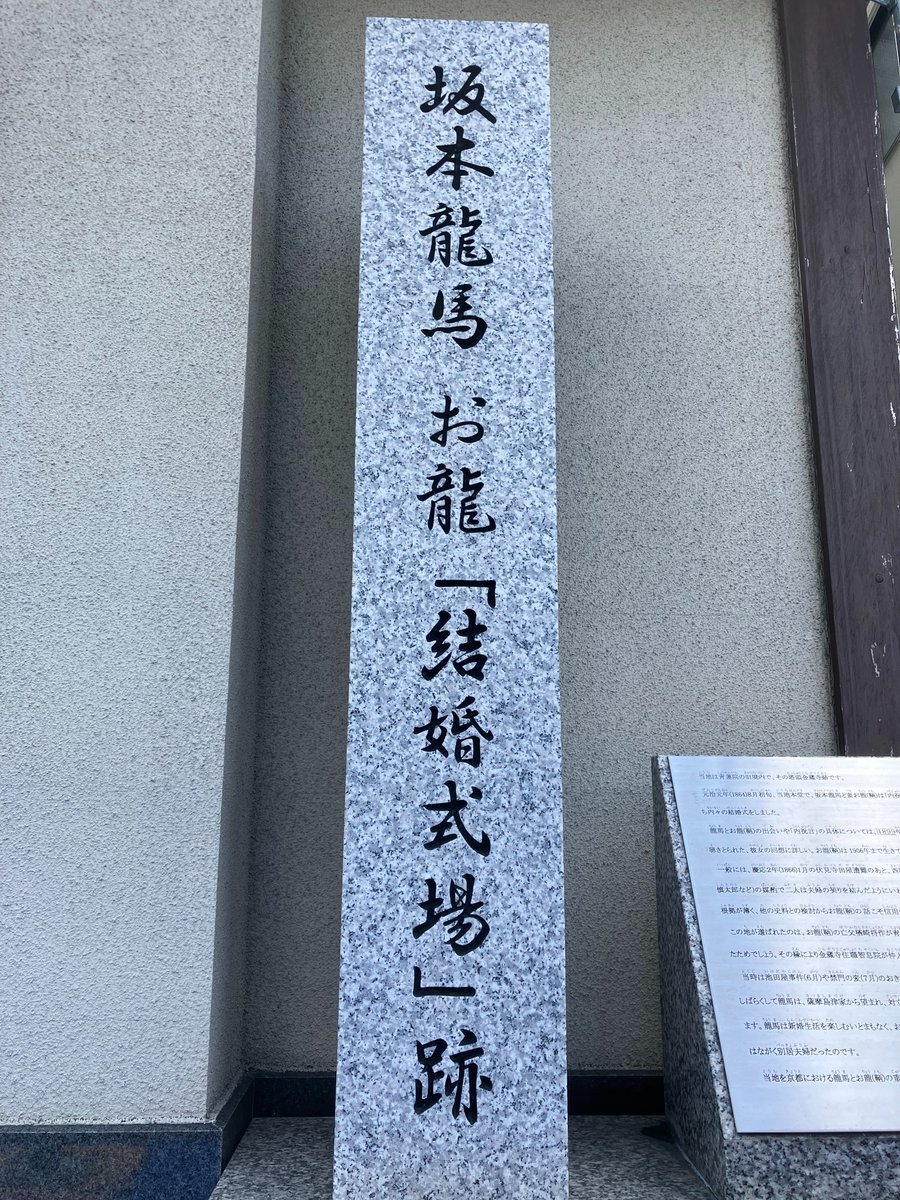 坂本龍馬 お龍「結婚式場」跡
当地は青蓮院の旧境内で、その塔頭金蔵寺跡です。
元治元年(1864)8月初旬、当地本堂で、坂本龍馬と妻お龍(鞆)は「内祝
ち内々の結婚式をしました。
龍馬とお龍(鞆)の出会いや「内祝言」の具体については、(1899年
聴きとられた、彼女の回想に詳しい。お龍(鞆)は1906年まで生き
一般には、慶応2年(1866)1月の伏見寺田屋遭難のあと、西
慎太郎など)の媒酌で二人は夫婦の契りを結んだようにい
根拠が薄く、他の史料との検討からお龍(鞆)の話こそ信用
この地が選ばれたのは、お龍(鞆)の亡父楢崎将作が
たためでしょう。その縁により金蔵寺住職智息院が仲人
当時は池田屋事件(6月)や禁門の変(7月)のおき
しばらくして龍馬は、薩摩島津家から望まれ、対立
ます。龍馬は新婚生活を楽しむいとまもなく、お
はながく別居夫婦だったのです。
当地を京都における龍馬とお龍(鞆)の